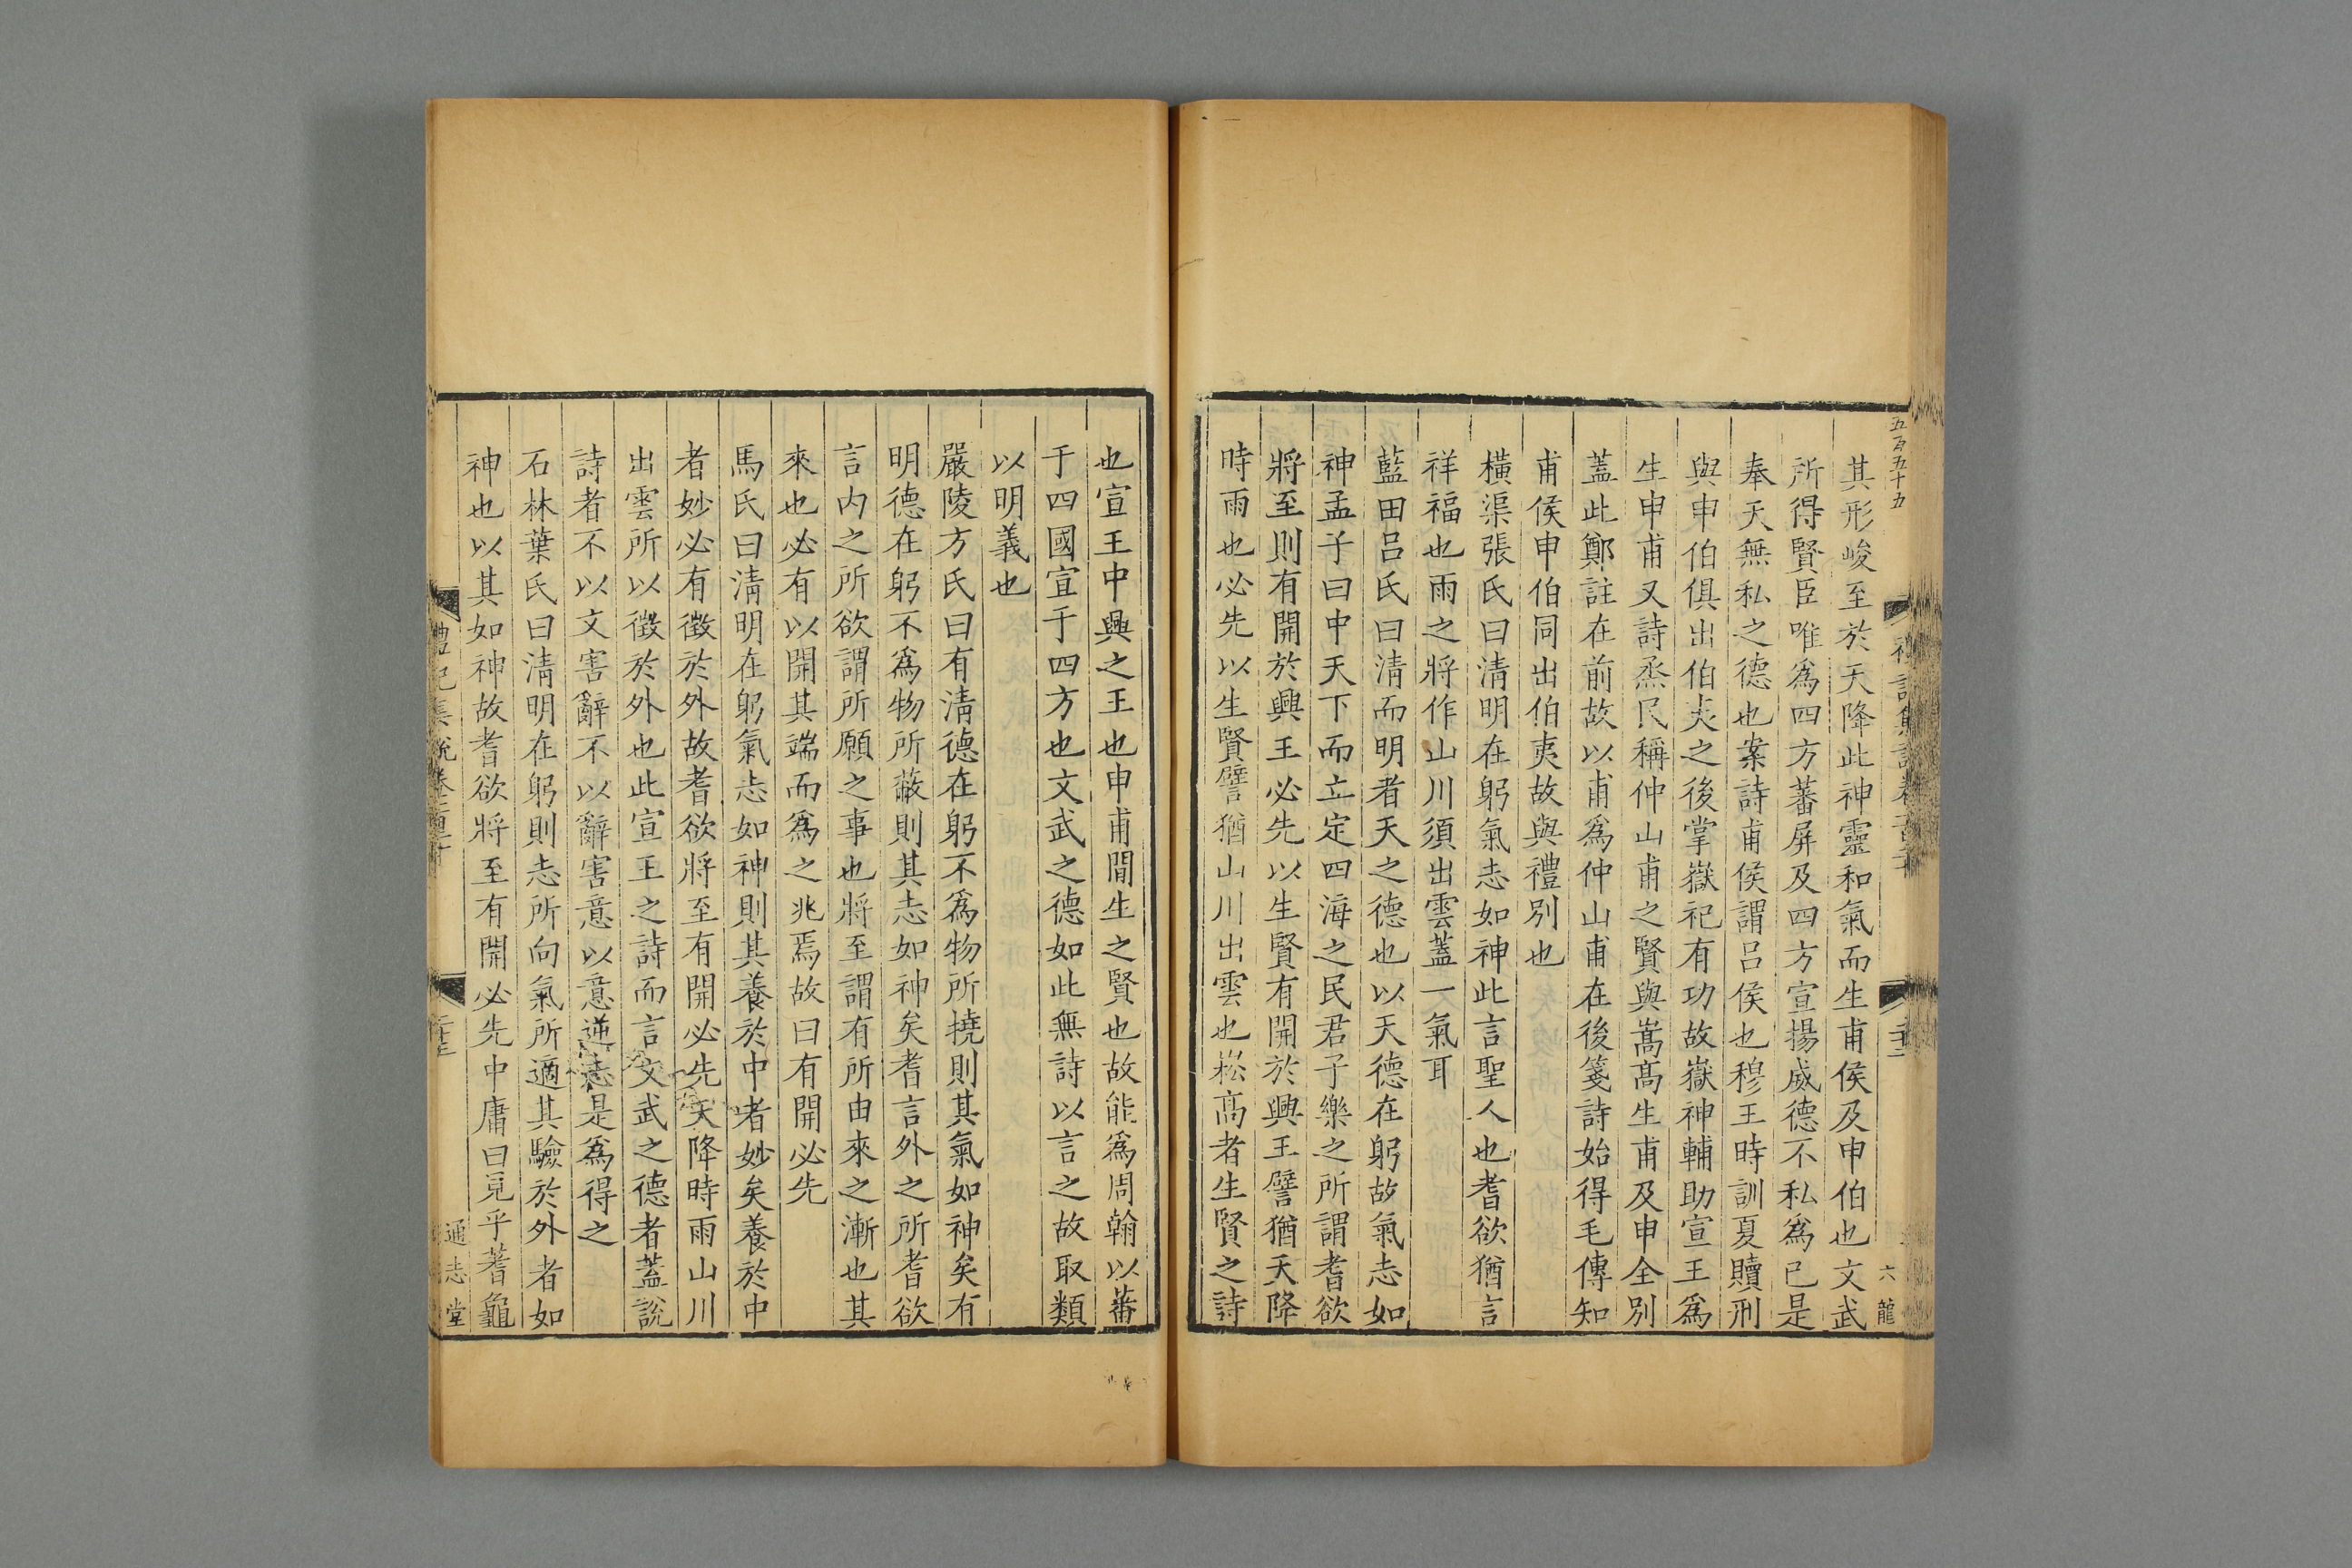 五百五十五
六
龍
其形峻至於天降此神靈和氣而生甫侯及申伯也文武
所得賢臣唯爲四方蕃屏及四方宣揚威德不私爲己是
奉天無私之德也案詩甫侯謂呂侯也穆王時訓夏贖刑
與申伯俱出伯夷之後掌嶽祀有功故嶽神輔助宣王爲
生申甫又詩烝民稱仲山甫之賢與嵩高生甫及申全別
蓋此鄭註在前故以甫爲仲山甫在後箋詩始得毛傳知
甫侯申伯同出伯夷故與禮別也
橫渠張氏曰清明在躬氣志如神此言聖人也耆欲猶言
祥福也雨之將作山川須出雲蓋一氣耳
藍田呂氏曰清而明者天之德也以天德在躬故氣志如
神孟子曰中天下而立定四海之民君子樂之所謂耆欲
將至則有開於興王必先以生賢有開於興王譬猶天降
時雨也必先以生賢譬猶山川出雲也崧高者生賢之詩
也宣王中興之王也申甫間生之賢也故能爲周翰以蕃
于四國宣于四方也文武之德如此無詩以言之故取類
以明義也
嚴陵方氏曰有清德在躬不爲物所撓則其氣如神矣有
明德在躬不爲物所蔽則其志如神矣耆言外之所耆欲
言内之所欲謂所願之事也將至謂有所由來之漸也其
來也必有以開其端而爲之兆焉故曰有開必先
馬氏曰清明在躬氣志如神則其養於中者妙矣養於中
者妙必有徵於外故耆欲將至有開必先天降時雨山川
出雲所以徵於外也此宣王之詩而言文武之德者蓋說
詩者不以文害辭不以辭害意以意逆志是爲得之
石林葉氏曰清明在躬則志所向氣所適其驗於外者如
神也以其如神故耆欲將至有開必先中庸曰見乎蓍龜
禮記集說卷
通志堂